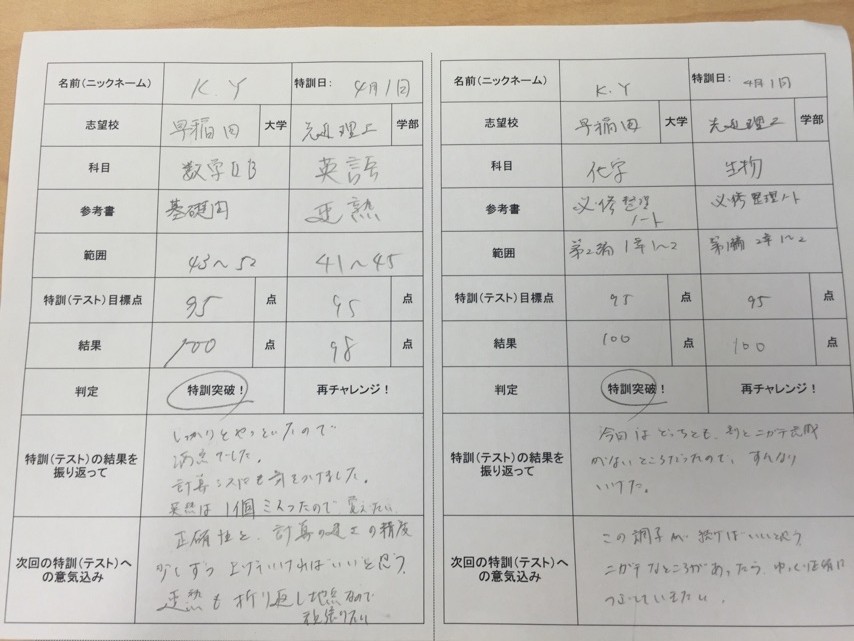 名前(ニックネーム) K.Y 特訓日: 4月1回
志望校 早稲田 大学 先進理工 学部
科目 数学ⅡB 英語
参考書 基礎問 速熟
範囲 43〜52 41〜45
特訓(テスト)目標点 95 点 95 点
結果 100 点 98 点
判定 特訓突破! 再チャレンジ!
特訓(テスト)の結果を振り返って
しっかりとやっといたので
満点でした。
計算ミスにも気をつけました。
英熟は1個ミスったので、覚えたい
次回の特訓(テスト)への意気込み
正確性と、計算の速さの精度
少しずつ上げていければいいと思う。
速熟も折り返し地点なので
頑張りたい
名前(ニックネーム) K.Y 特訓日: 4月1回
志望校 早稲田 大学 先進理工 学部
科目 化学 生物
参考書 必修整理ノート 必修整理ノート
範囲 第2編 1章1〜2 第1編 2章1〜2
特訓(テスト)目標点 95 点 95 点
結果 100 点 100 点
判定 特訓突破! 再チャレンジ!
特訓(テスト)の結果を振り返って
今回はどっちとも、割とニガテ意識
がないところだったので、すんなり
いけた。
次回の特訓(テスト)への意気込み
この調子が続けばいいと思う。
ニガテなところがあったら、ゆっくり正確に
つぶしていきたい。